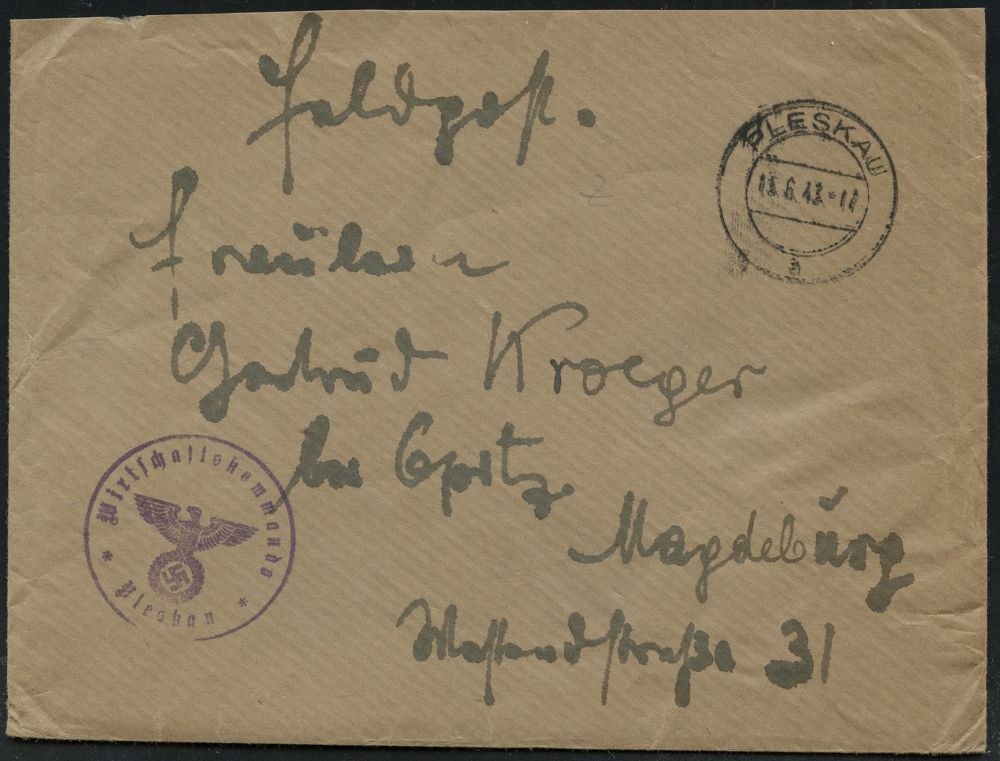 Feldpost.
PLESKAU
13.6.43.-17
a
2
Fräulein
Gertrud Kroeger
bei Opitz
Magdeburg
Westendstraße 31
Wirtschaftskommando
* Pleskau *